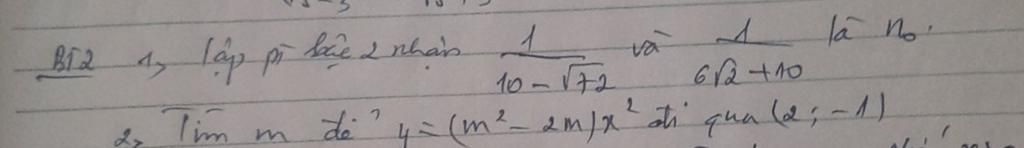 BT2 1, lập pt bậc 2 nhận 1/(10 - √72) và 1/(6√2 + 10) là no.
2, Tìm m để y = (m² - 2m)x² đi qua (2; -1)